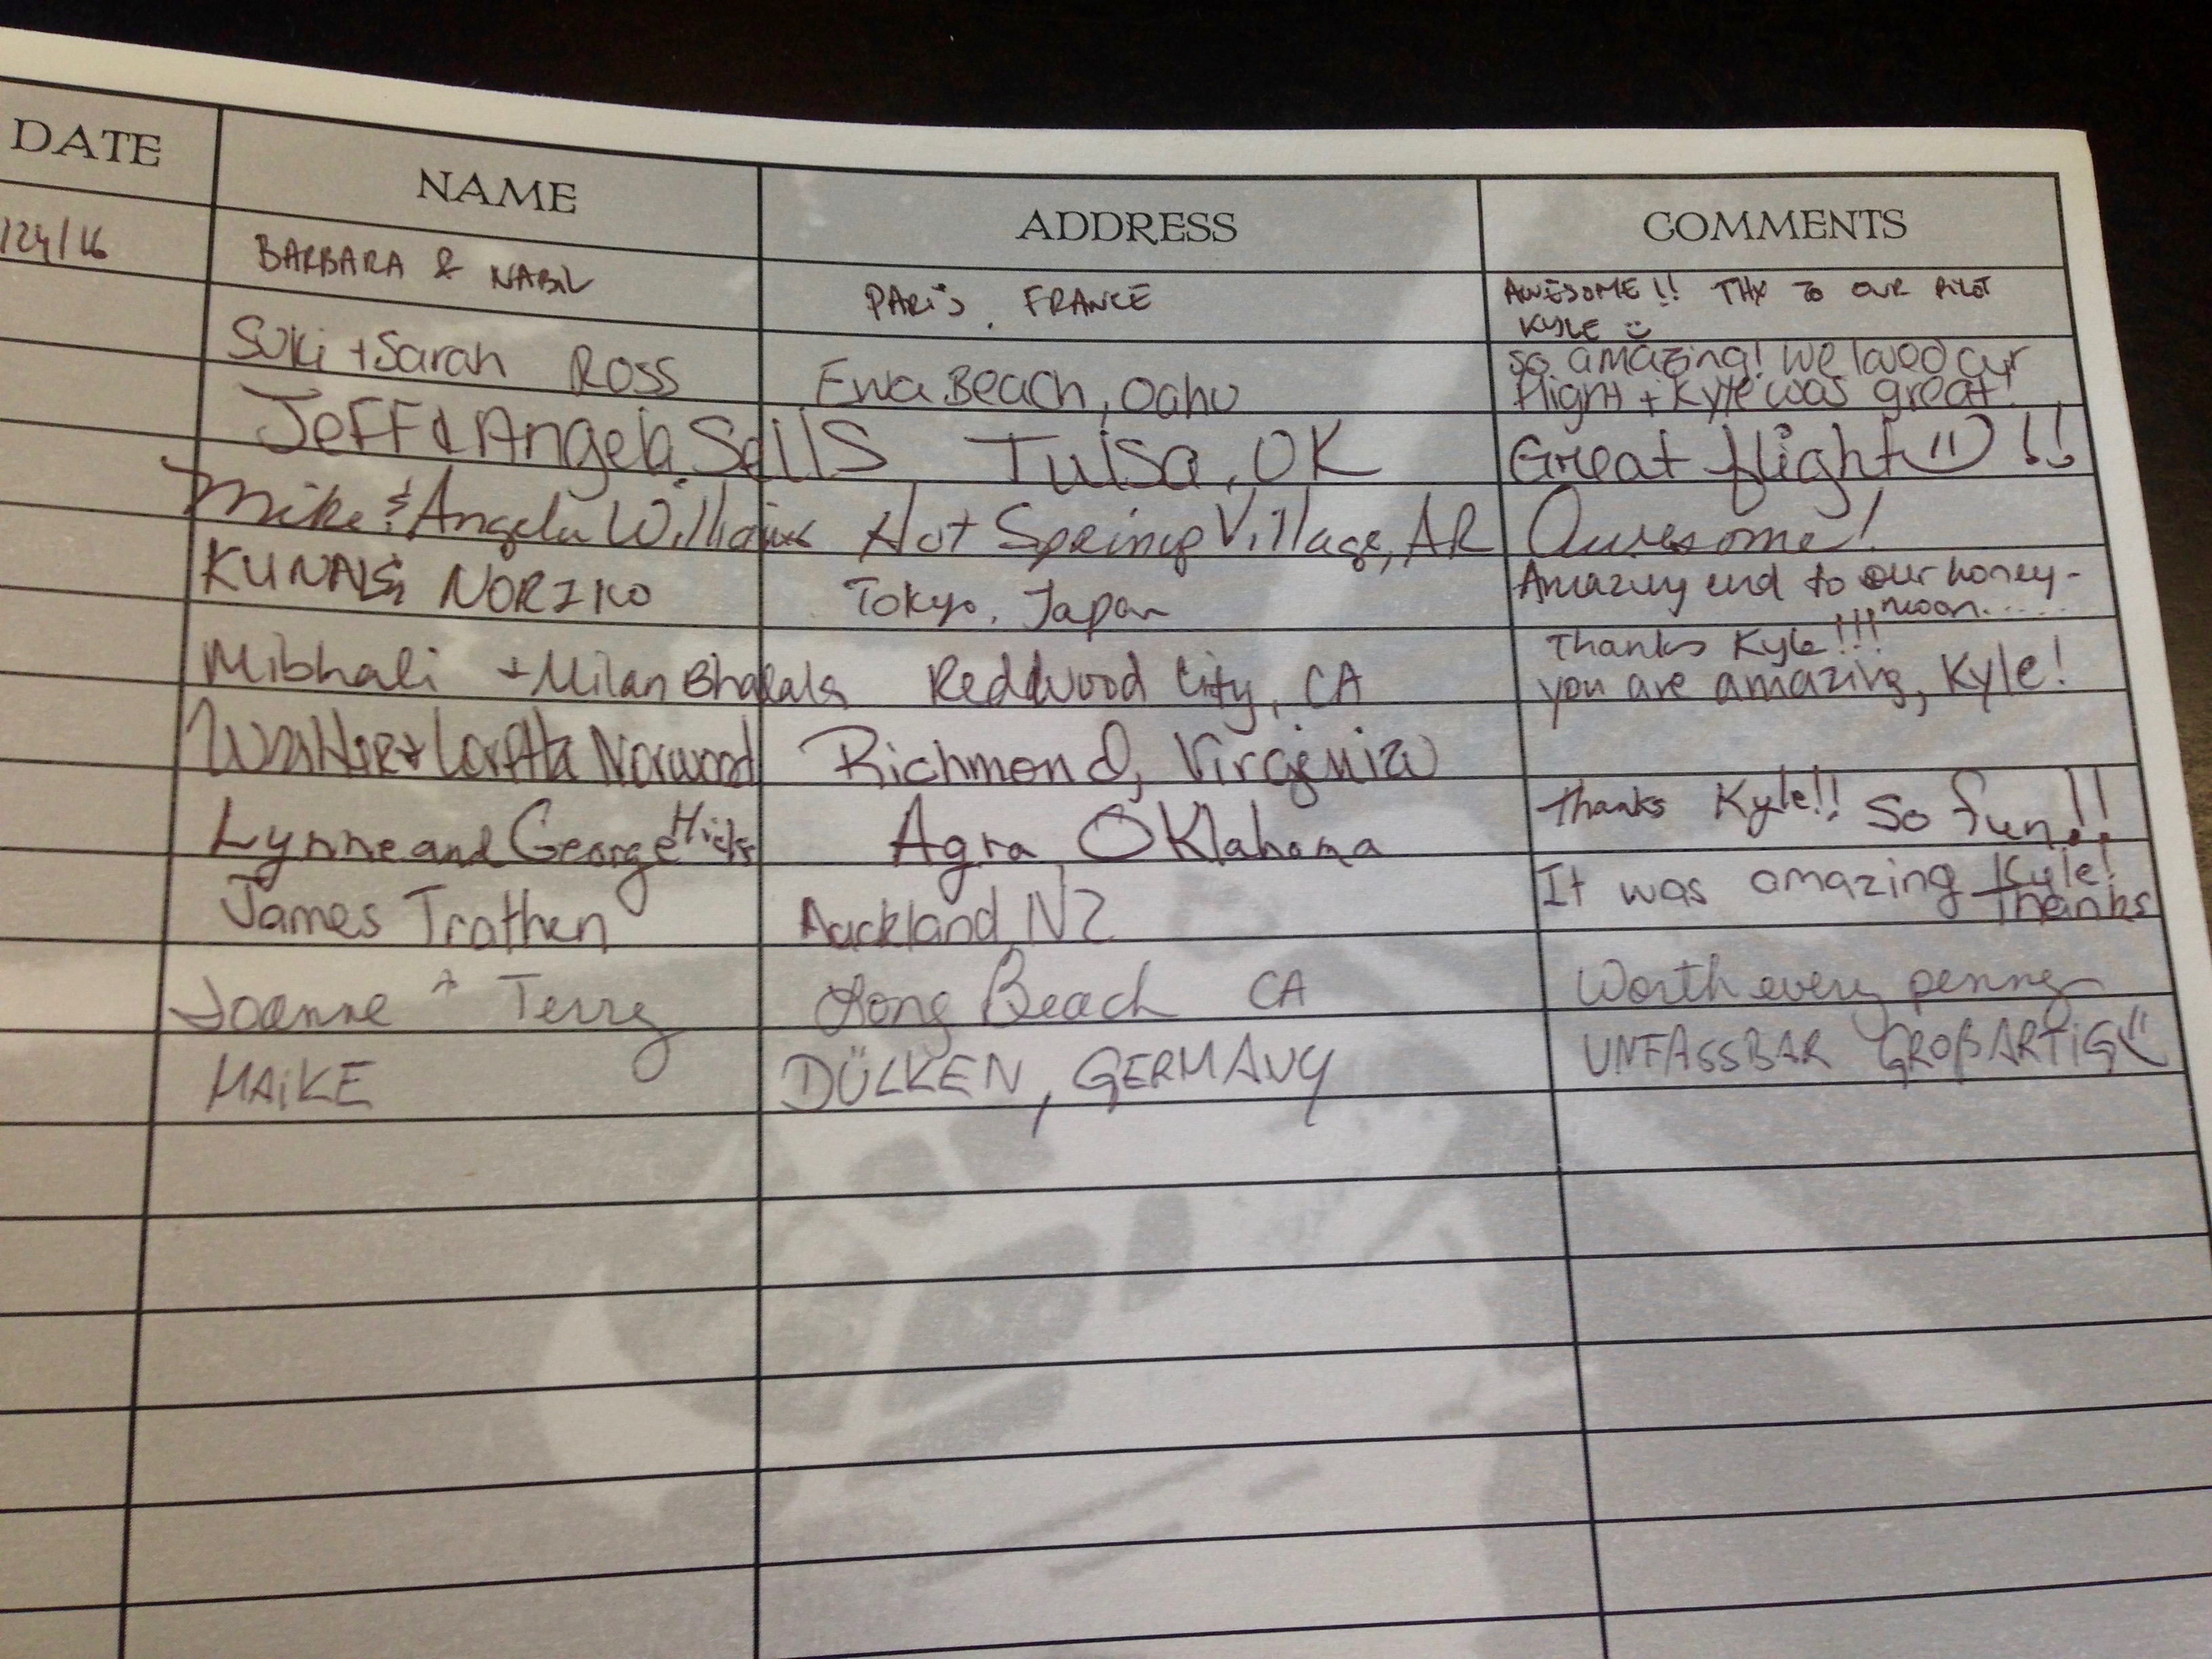 DATE NAME ADDRESS COMMENTS
/24/16 BARBARA & NABIL PARIS, FRANCE AWESOME!! THX TO OUR PILOT
KYLE
Suki + Sarah Ross Ewa Beach, Oahu So amazing! We loved our
flight + Kyle was great!
Jeff & Angela Sells Tulsa, OK Great flight !!
Mike & Angela Williams Hot Springs Village, AR Awesome!
KUNAL & NORIKO Tokyo, Japan Amazing end to our honey-
moon.....
Thanks Kyle!!!
+ Milan Redwood City, CA you are amazing, Kyle!
Walter + Loretta Norwood Richmond, Virginia
Lynne and George Hicks Agra Oklahoma Thanks Kyle!! So fun!!
James Trathen Auckland NZ It was amazing Kyle!
Thanks
Joanne + Terry Long Beach CA Worth every penny
MAIKE DÜLKEN, GERMANY UNFASSBAR GROßARTIG